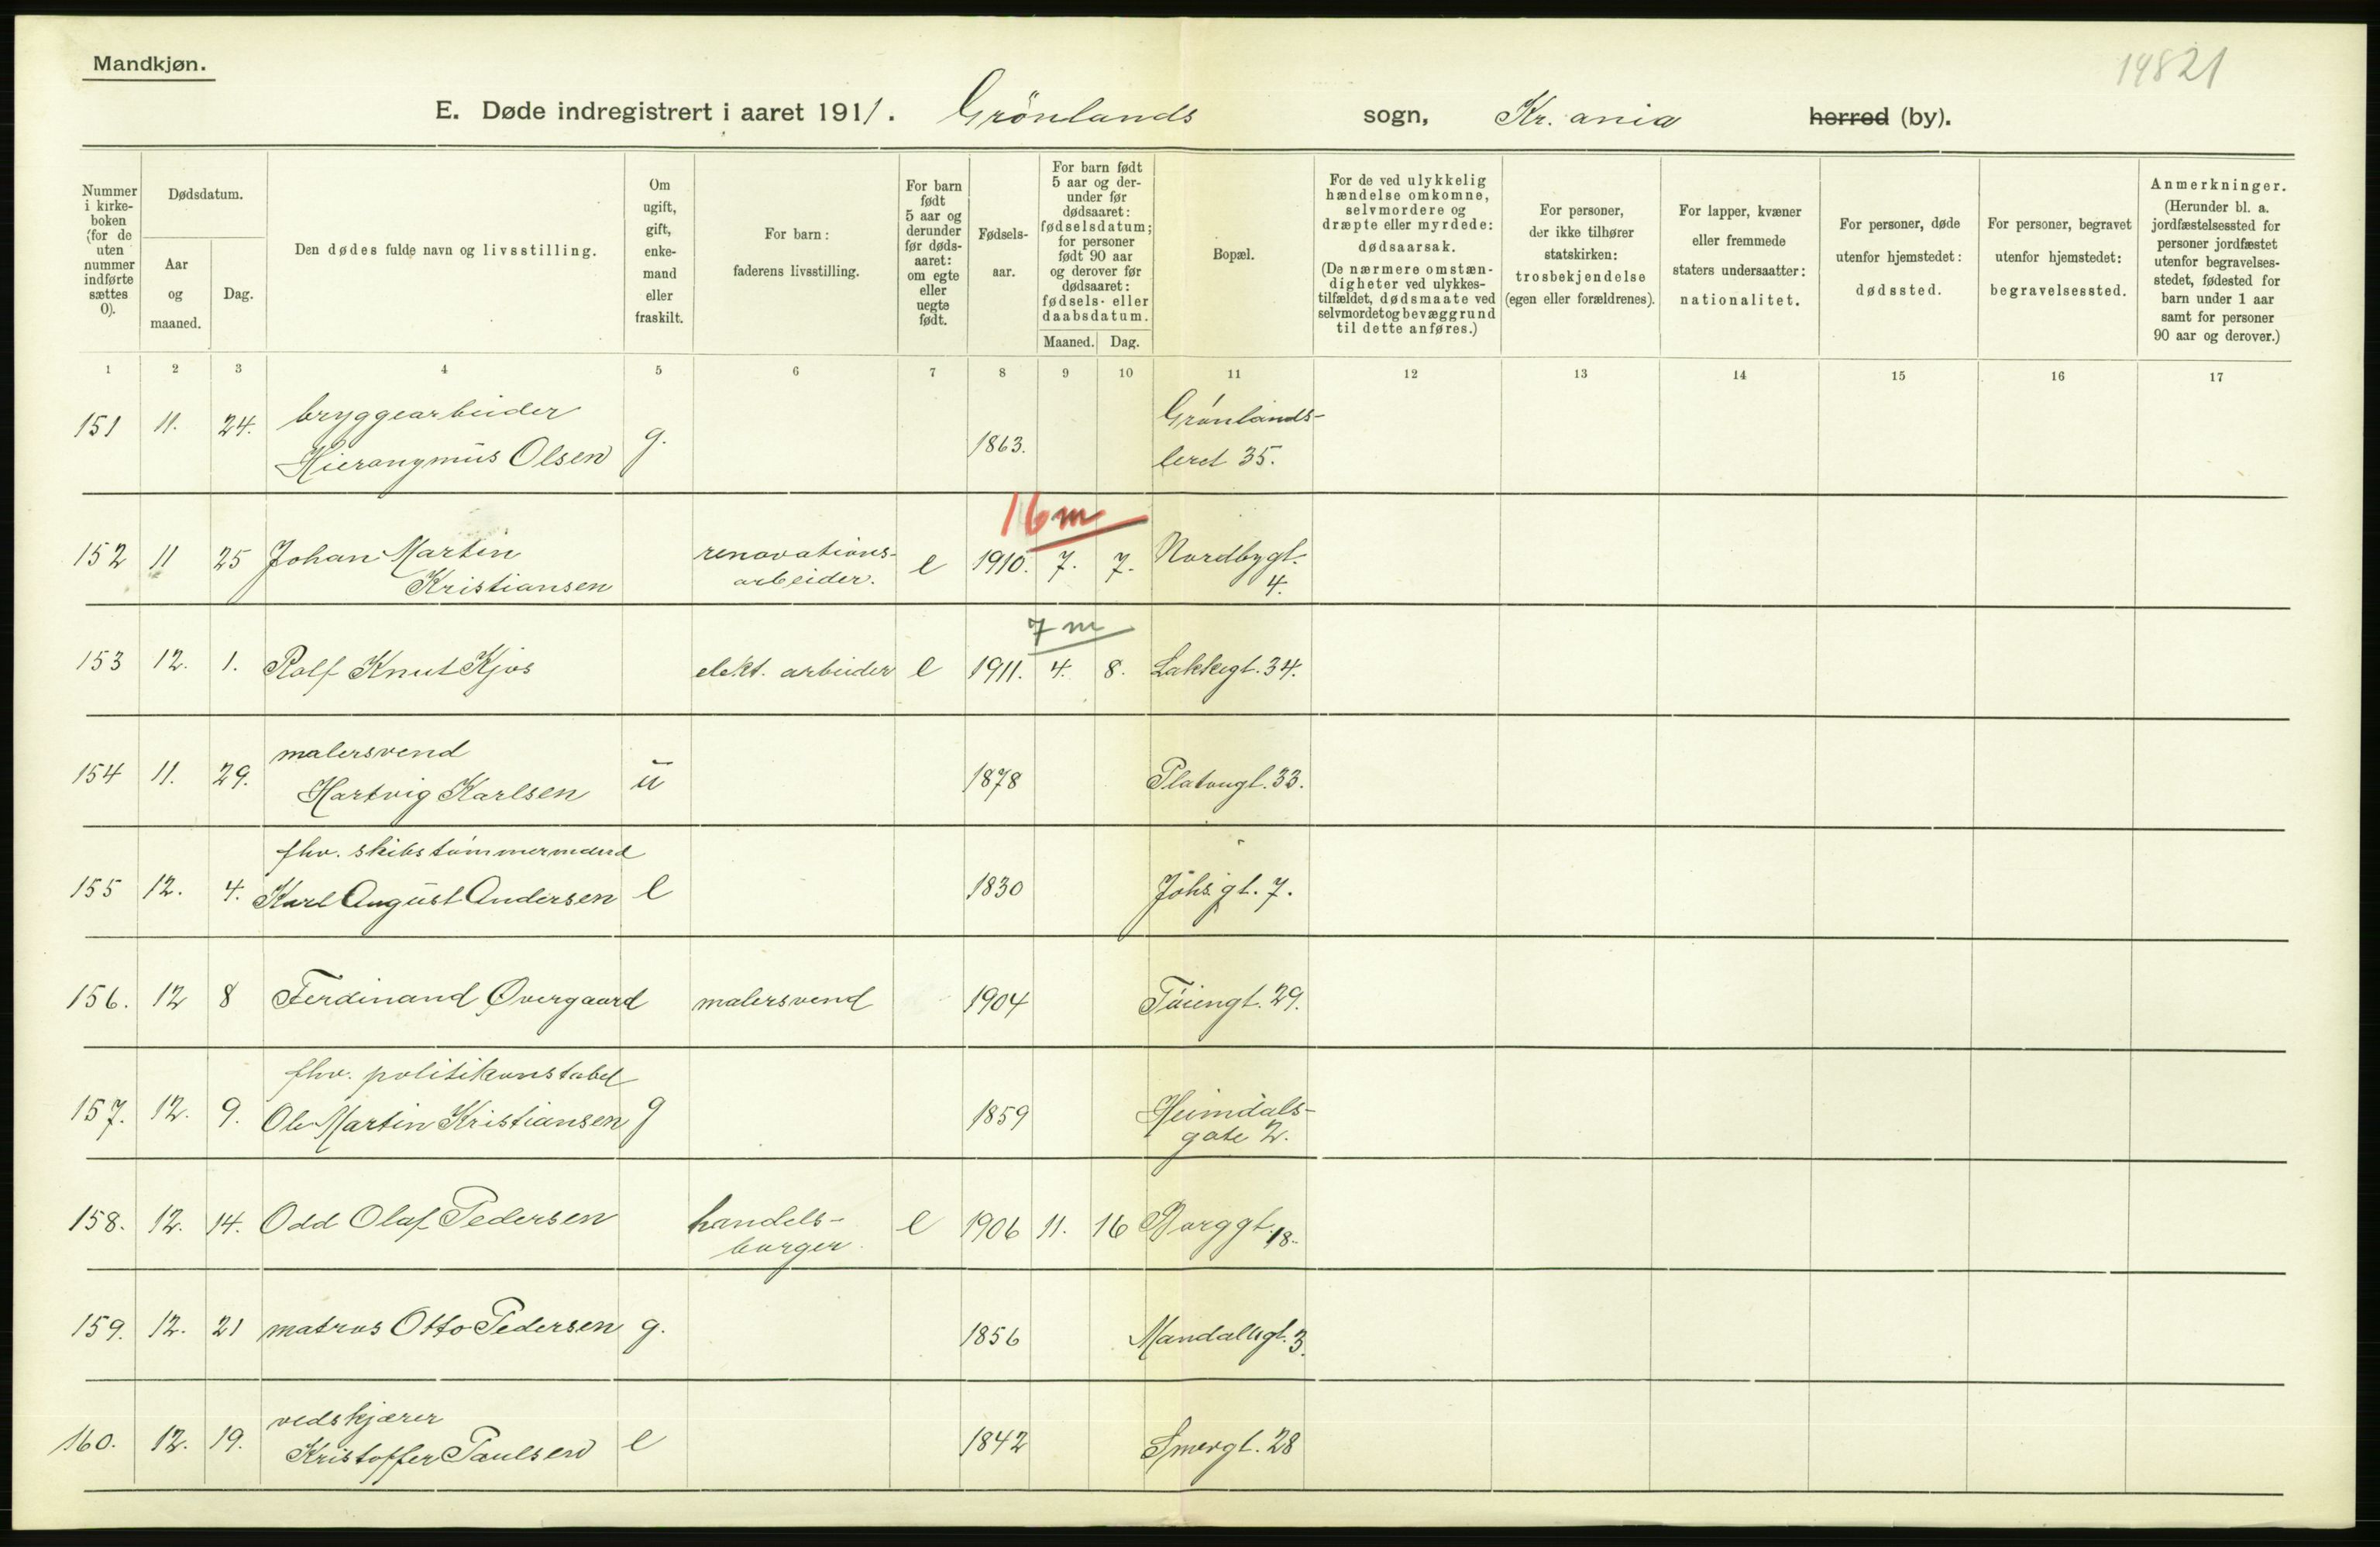 Mandkjøn.
14821
E. Døde indregistrert i aaret 1911. Grönlands sogn, Kr.ania herred (by).
Nummer i kirke-boken (for de uten nummer indførte sættes 0).
Dødsdatum.
Aar og maaned.
Dag.
Den dødes fulde navn og livsstilling.
Om ugift, gift, enke-mand eller fraskilt.
For barn: faderens livsstilling.
For barn født 5 aar og derunder før døds-aaret: om egte eller uegte født.
Fødsels-aar.
For barn født 5 aar og der-under før dødsaaret: fødselsdatum; for personer født 90 aar og derover før dødsaaret: fødsels- eller daabsdatum.
Maaned. Dag.
Bopæl.
For de ved ulykkelig hændelse omkomne, selvmordere og dræpte eller myrdede: dødsaarsak. (De nærmere omstæn-digheter ved ulykkes-tilfældet, dødsmaate ved selvmordet og bevæggrund til dette anføres.)
For personer, der ikke tilhører statskirken: trosbekjendelse (egen eller forældrenes).
For lapper, kvæner eller fremmede staters undersaatter: nationalitet.
For personer, døde utenfor hjemstedet: dødssted.
For personer, begravet utenfor hjemstedet: begravelsessted.
Anmerkninger. (Herunder bl. a. jordfæstelsessted for personer jordfæstet utenfor begravelses-stedet, fødested for barn under 1 aar samt for personer 90 aar og derover.)
1 2 3 4 5 6 7 8 9 10 11 12 13 14 15 16 17
bryggearbeider Grønlands-
151 11. 24. Hieronymus Olsen g. 1863. leret 35.
16 m
152 11 25 Johan Martin renovations- e 1910. 7. 7. Nordbygt.
Kristiansen arbeider. 4.
7 m
153 12. 1. Rolf Knut Kjos elekt. arbeider e 1911. 4. 8. Lakkegt. 34.
malersvend
154 11. 29. Hartvig Karlsen u 1878 Platougt. 33.
fhv. skibstømmermand
155 12. 4. Karl August Andersen e 1830 Johs. gt. 7.
156. 12 8 Ferdinand Overgaard malersvend 1904 Tøiengt. 29.
fhv. politikonstabel
157. 12. 9. Ole Martin Kristiansen g 1859 Heimdals-
gate 2.
158. 12. 14. Odd Olaf Pedersen handels- e 1906 11. 16 Borggt. 18.
borger.
159. 12. 21 matros Otto Pedersen g. 1856 Mandallsgt. 3.
vedskjærer
160. 12. 19. Kristoffer Paulsen e 1842 Smergt. 28